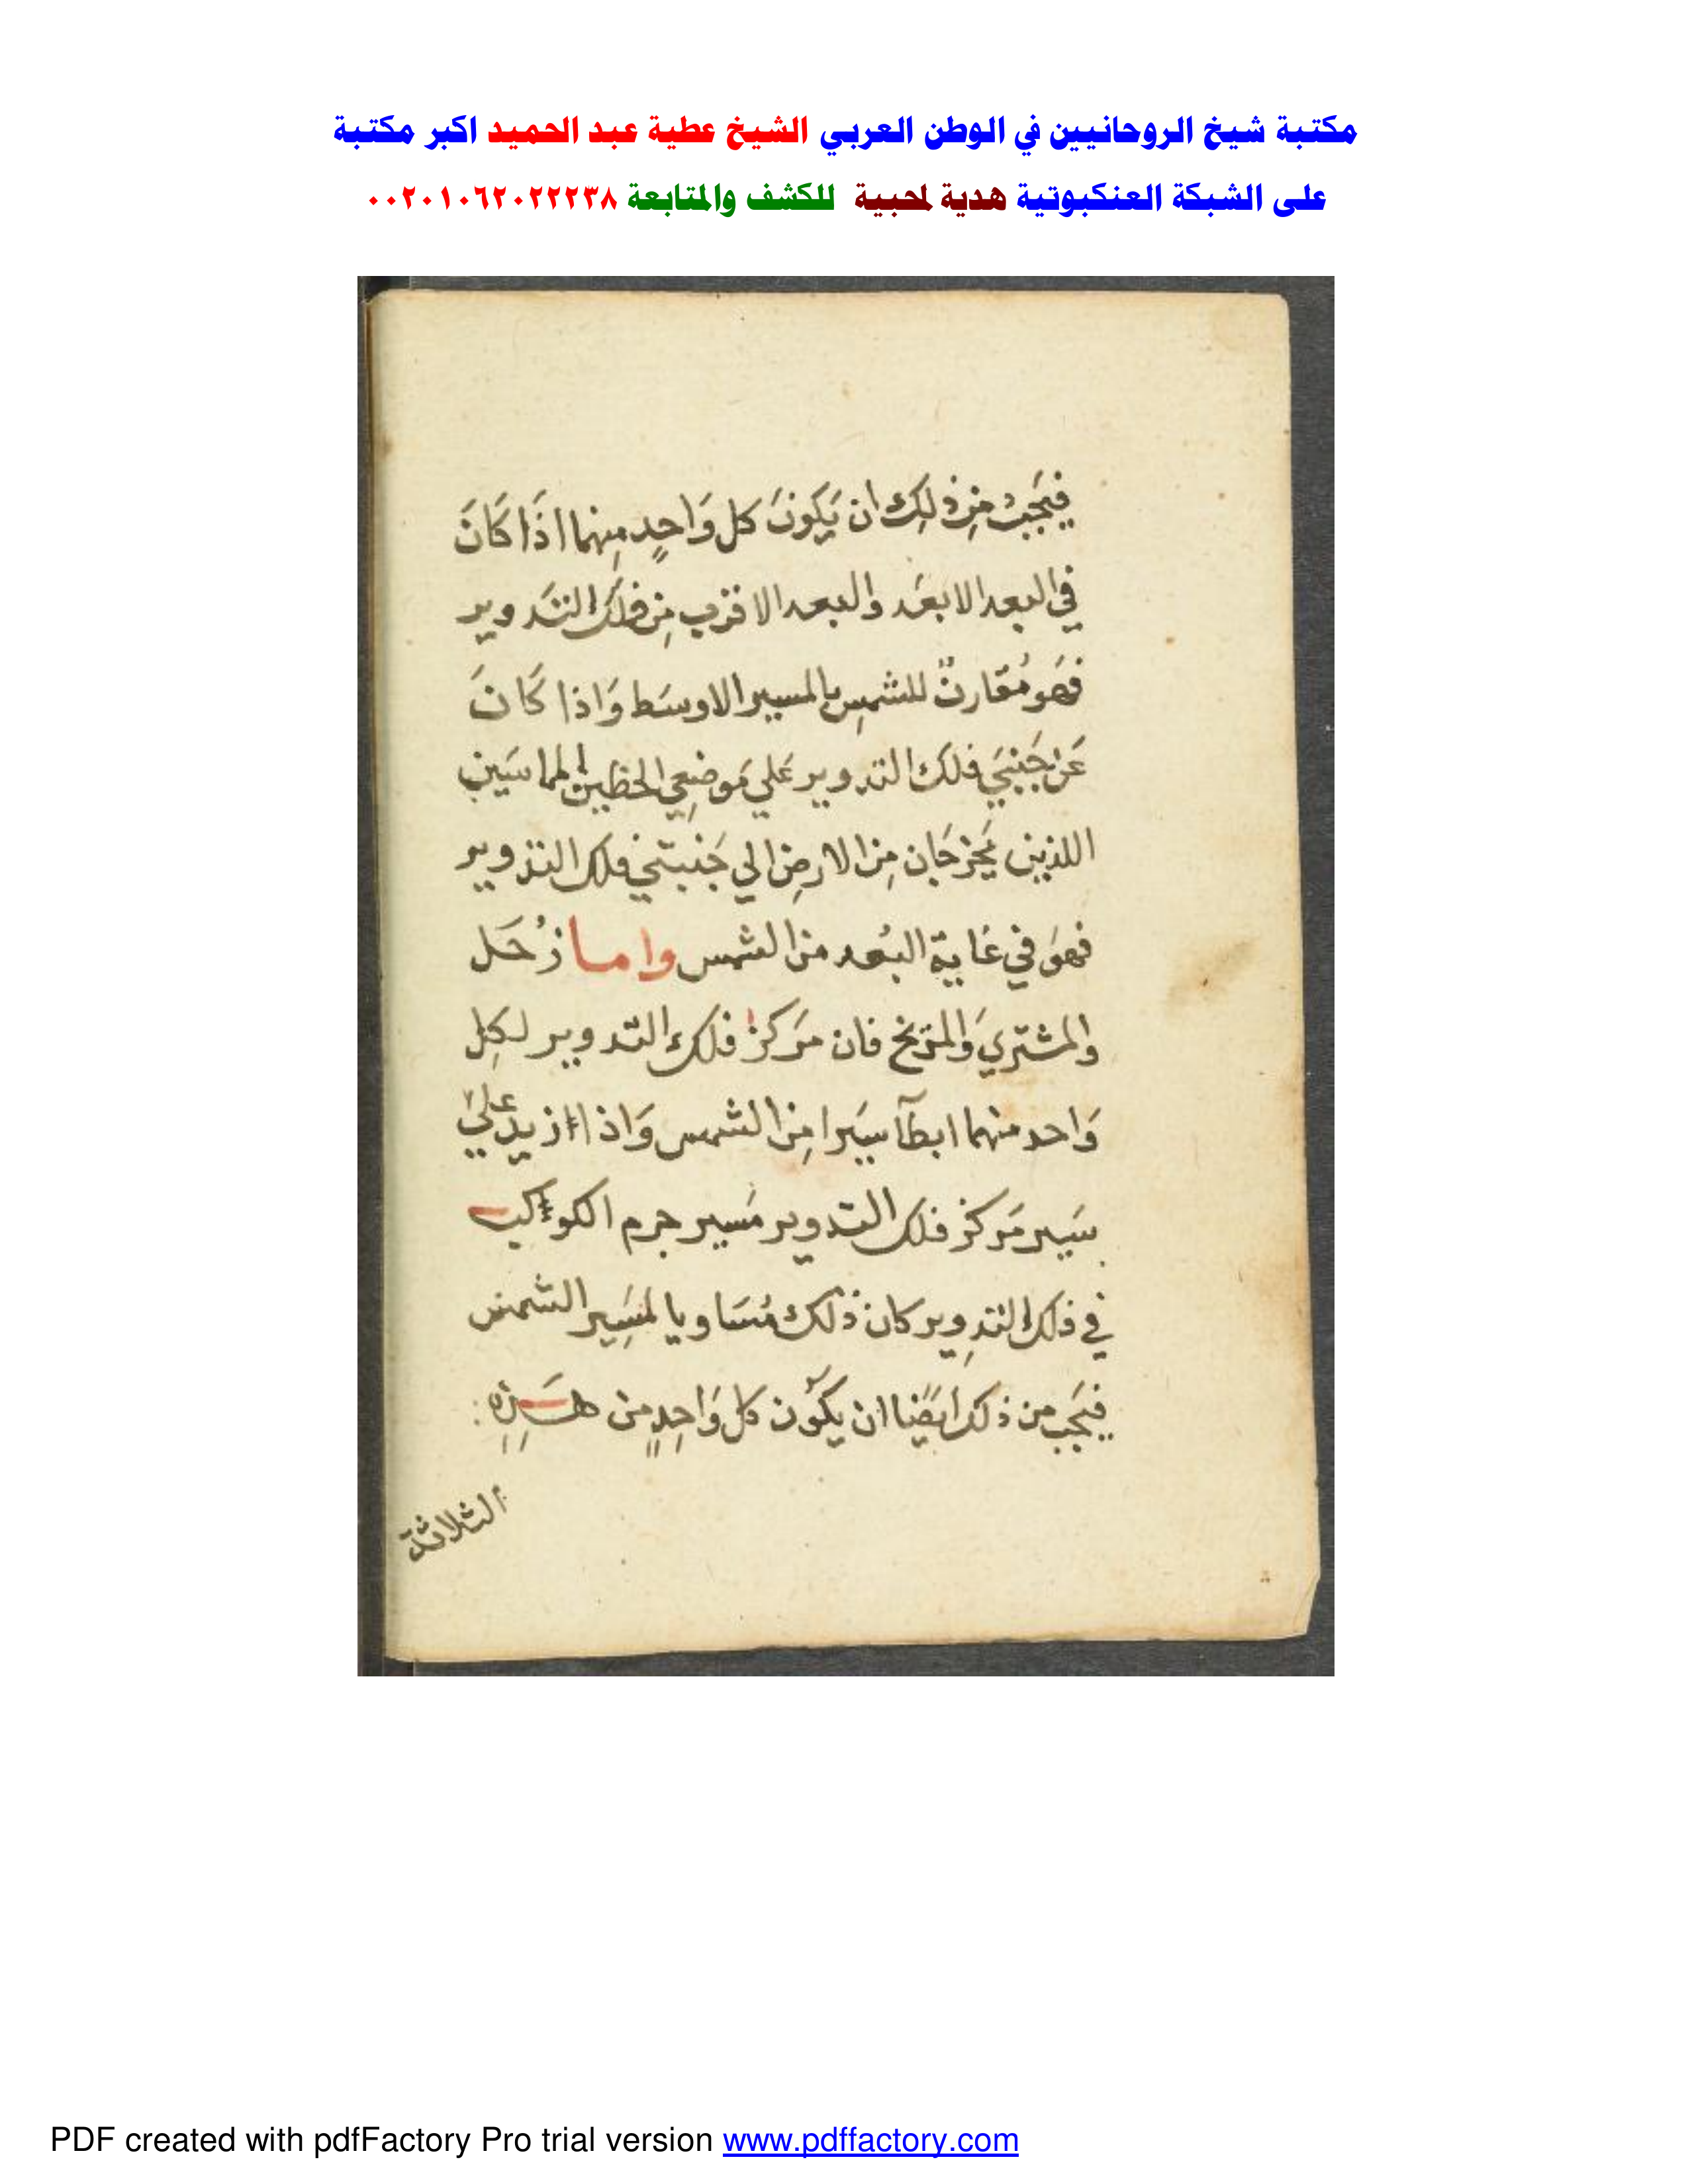 مكتبة شيخ الروحانيين في الوطن العربي الشيخ عطية عبد الحميد اكبر مكتبة
على الشبكة العنكبوتية هدية لمحبية للكشف والمتابعة ٠٠٢٠١٠٦٢٠٢٢٢٣٨
فيَجبُ مِن ذلِك ان يَكونَ كل وَاحِدٍ مِنهما اذَا كَانَ
في البعد الابعَد والبعد الاقرب مِن فلك التَدوير
فهَو مُقارنٌ للشمسِ بالمسير الاوسَط وَاذا كَانَ
عَن جَنبتَي فلك التدوير عَلي مَوضعِي الخطين المماسَين
اللذين يَخرجَان مِن الارضِ الي جَنبتَي فلك التدوير
فهوَ في غَاية البُعد من الشمس واما زُحَل
والمشتري وَالمريخ فان مَركز فلك التدوير لكِل
وَاحد منهما ابطآ سَيرا مِن الشمس وَاذا ازيد عليَ
سَير مَركز فلك التدوير مَسير جرم الكواكب
في فلك التدوير كان ذلك مُسَاويا لمسَِير الشمس
فيَجب من ذلك ايضًا ان يكوُن كل وَاحِدٍ من هَذِهِ
الثلاثة
PDF created with pdfFactory Pro trial version www.pdffactory.com